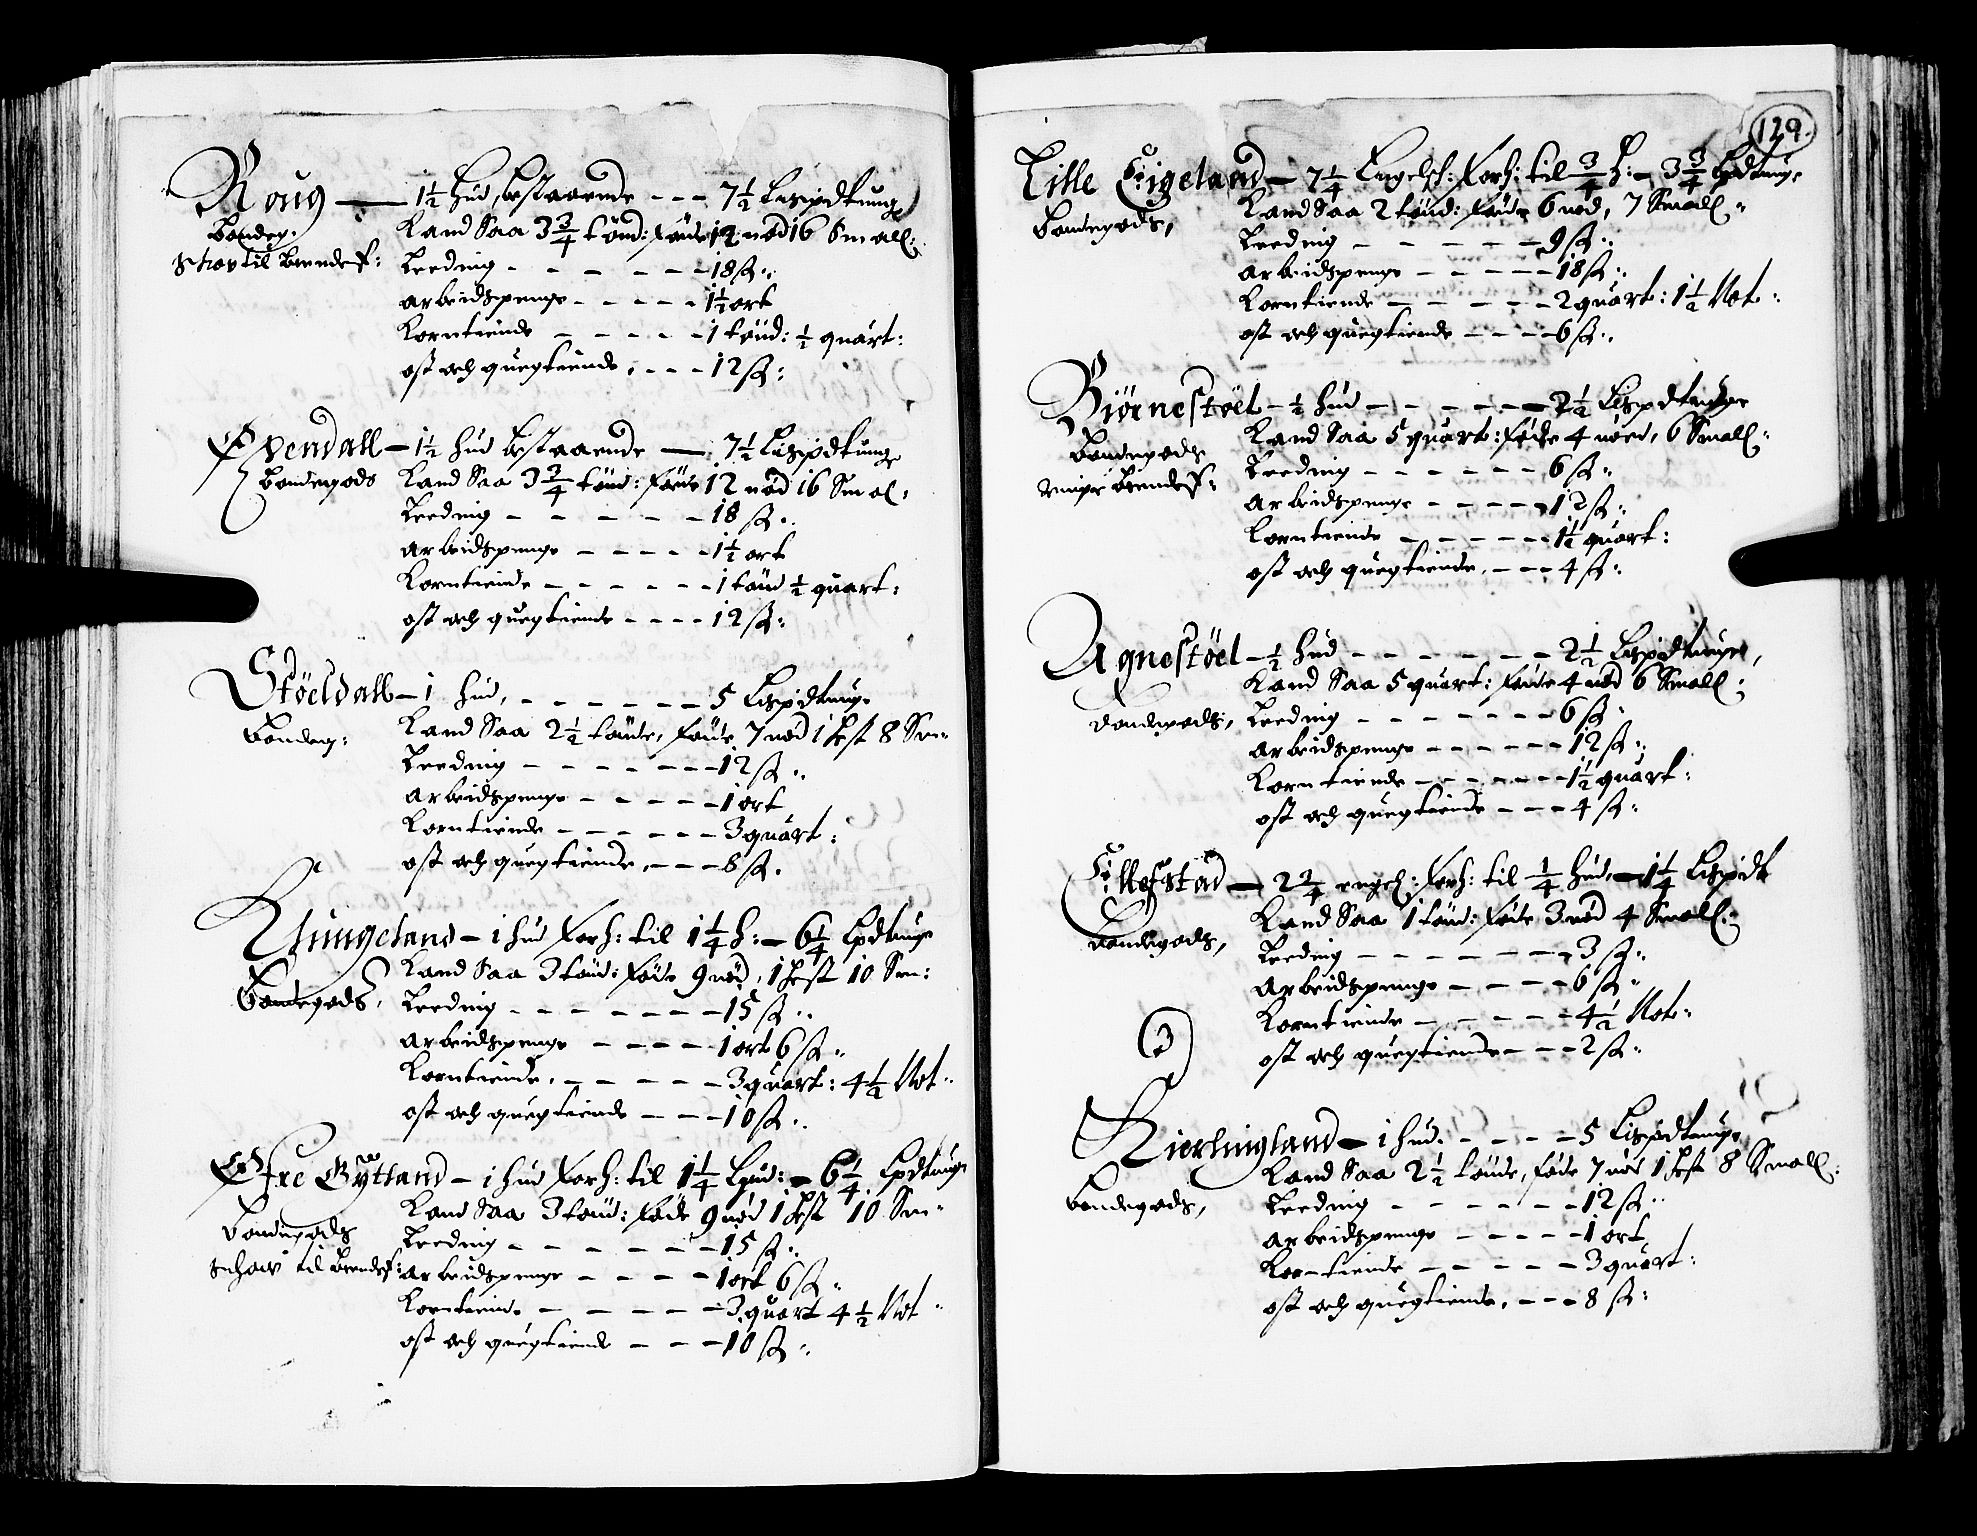 Roug — 1½ hud, bestaaende - - - 7½ Lispdtunge
Bondeg:
Skov til brendef:
Kand Saa 3¾ tønd: føde 12 nød 16 Small:
Leeding - - - - - - 18 ß:
arbeidspenge - - - - - 1½ ort
Korntiende - - - - - 1 tønd: ½ quart:
ost och quegtiende, - - - 12 ß:
Qvendall — 1½ hud bestaaende — 7½ Lispdtunge
Bondegods
Kand Saa 3¾ tønd: føde 12 nød 16 Smal:
Leeding - - - - - 18 ß:
arbeidspenge - - - - - 1½ ort
Korntiende - - - - - - 1 tønd ½ quart:
ost och quegtiende - - - - 12 ß:
Støeldall — 1 hud, - - - - - - 5 Lispdtunge
Bondeg:
Kand Saa 2½ tønde, føde 7 nød 1 hest 8 Sm:
Leeding - - - - - - - 12 ß:
arbeidspenge - - - - - 1 ort
Korntiende - - - - - - 3 quart:
ost och quegtiende, - - - 8 ß.
Klungeland — 1 hud forh: til 1¼ h: — 6¼ Lpdtunge
Bondegods,
Kand Saa 3 tønd: føde 9 nød, 1 hest 10 Sm:
Leeding - - - - - - - 15 ß:
arbeidspenge - - - - 1 ort 6 ß:
Korntiende, - - - - - 3 quart: 4½ Not:
ost och quegtiende - - - 10 ß:
Øfre Gÿtland — 1 hud forh: til 1¼ hud: — 6¼ Lpdtunge
Bondegods
schow til brendef:
Kand Saa 3 tønd: føde 9 nød 1 hest 10 Sm:
Leeding - - - - - - 15 ß:
arbeidspenge - - - - 1 ort 6 ß:
Korntiende - - - - - 3 quart 4½ Not:
ost och quegtiende - - - 10 ß:
129.
Lille Eigeland — 7¼ Engelsk: forh: til ¾ h: — 3¾ Lpdtunge
Bondegods,
Kand Saa 2 tønd: føde 6 nød, 7 Small:
Leeding - - - - - - 9 ß:
arbeidspenge - - - - - 18 ß:
Korntiende - - - - - 2 quart: 1½ Not:
ost och quegtiende - - - - 6 ß:
Biørnestøel - ½ hud - - - - - 2½ Lispdtunge
Bondegods
ringe brendef:
Kand Saa 5 quart: føde 4 nød, 6 Small:
Leeding - - - - - - 6 ß:
arbeidspenge - - - - - 12 ß:
Korntiende - - - - - - 1½ quart:
ost och quegtiende, - - - 4 ß:
Agnestøel - ½ hud - - - - - - - 2½ Lispdtunge,
Bondegods,
Kand Saa 5 quart: føde 4 nød 6 Small:
Leeding - - - - - - - 6 ß:
arbeidspenge - - - - - - 12 ß:
Korntiende - - - - - - 1½ quart:
ost och quegtiende - - - 4 ß:
Ellefstad — 2¼ engel: forh: til ¼ hud, — 1¼ Lispdt
Bondegods,
Kand Saa 1 tønd: føde 3 nød 4 Small:
Leeding - - - - - - - 3 ß:
Arbeidspenge - - - - - 6 ß:
Korntiende - - - - - - 4½ Not:
ost och quegtiende - - - 2 ß:
3
Kierlingland — 1 hud: - - - - 5 Lispdtunge
Bondegods,
Kand Saa 2½ tønde, føde 7 nød 1 hest 8 Small:
Leeding - - - - - - - 12 ß:
arbeidspenge - - - - - 1 ort
Korntiende - - - - - 3 quart:
ost och quegtiende, - - - 8 ß: